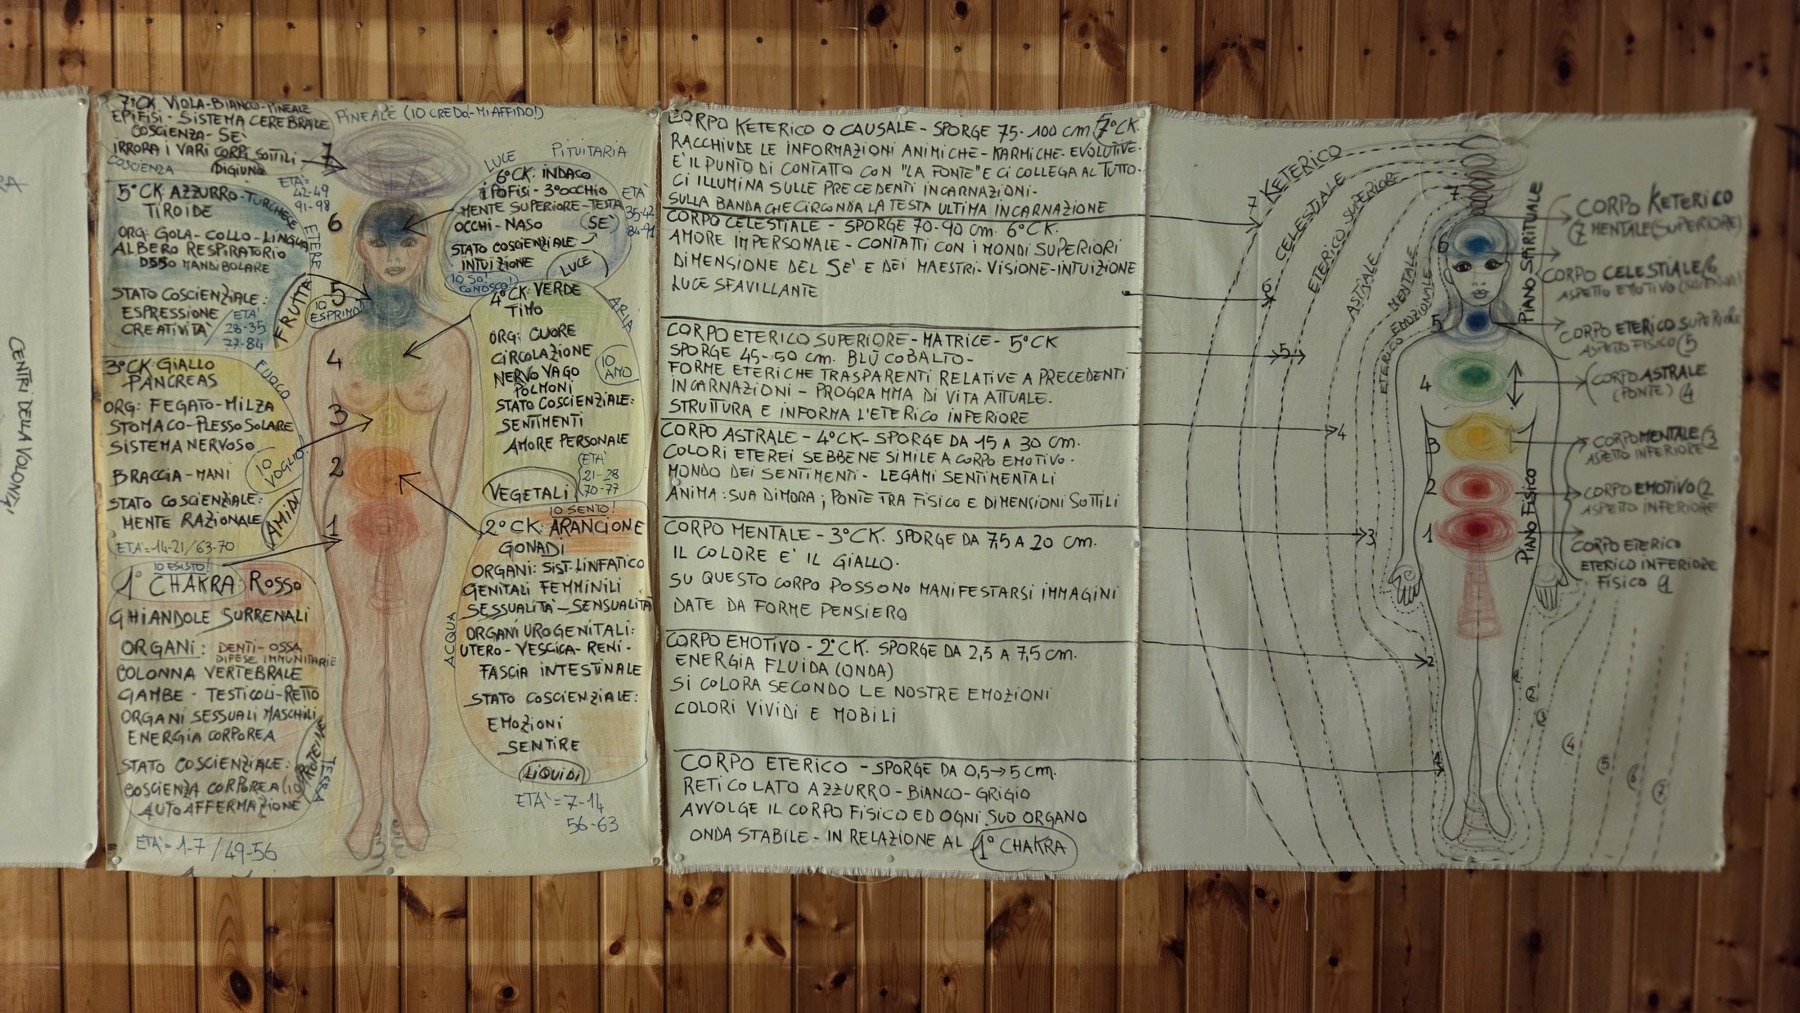 CENTRI DELLA VOLONTA'
7°CK VIOLA-BIANCO-PINEALE
EPIFISI - SISTEMA CEREBRALE
COSCIENZA - SE'
IRRORA I VARI CORPI SOTTILI
COSCIENZA
DIGIUNO
7
PINEALE (IO CREDO - MI AFFIDO!)
ETA'
42-49
91-98
5° CK AZZURRO-TURCHESE
TIROIDE
ORG: GOLA - COLLO - LINGUA
ALBERO RESPIRATORIO
OSSO MANDIBOLARE
STATO COSCIENZIALE:
ESPRESSIONE
CREATIVITA'
ETA'
28-35
77-84
ETERE
FRUTTA
IO
ESPRIMO
LUCE
PITUITARIA
6°CK: INDACO
IPOFISI - 3°OCCHIO
MENTE SUPERIORE - TESTA
OCCHI - NASO
SE'
STATO COSCIENZIALE
INTUIZIONE
LUCE
IO SO!
CONOSCO!
ETA'
35-42
84-91
6
5
4
3
2
1
4°CK VERDE
TIMO
ARIA
ORG: CUORE
CIRCOLAZIONE
NERVO VAGO
POLMONI
IO
AMO
STATO COSCIENZIALE:
SENTIMENTI
AMORE PERSONALE
VEGETALI
ETA'
21-28
70-77
3°CK GIALLO
PANCREAS
FUOCO
ORG: FEGATO - MILZA
STOMACO - PLESSO SOLARE
SISTEMA NERVOSO
BRACCIA - MANI
IO
VOGLIO
STATO COSCIENZIALE:
MENTE RAZIONALE
AMIDI
ETA'=14-21/63-70
IO SENTO!
2°CK: ARANCIONE
GONADI
ORGANI: SIST. LINFATICO
GENITALI FEMMINILI
SESSUALITA' - SENSUALITA'
ORGANI UROGENITALI:
UTERO - VESCICA - RENI -
FASCIA INTESTINALE
STATO COSCIENZIALE:
EMOZIONI
SENTIRE
LIQUIDI
ACQUA
ETA'=7-14
56-63
IO ESISTO!
1° CHAKRA ROSSO
GHIANDOLE SURRENALI
ORGANI: DENTI - OSSA
DIFESE IMMUNITARIE
COLONNA VERTEBRALE
GAMBE - TESTICOLI - RETTO
ORGANI SESSUALI MASCHILI
ENERGIA CORPOREA
STATO COSCIENZIALE:
COSCIENZA CORPOREA (IO)
AUTOAFFERMAZIONE
PROTEINE
TERRA
ETA'=1-7/49-56
CORPO KETERICO O CAUSALE - SPORGE 75-100 cm (7°CK.
RACCHIUDE LE INFORMAZIONI ANIMICHE - KARMICHE - EVOLUTIVE.
E' IL PUNTO DI CONTATTO CON "LA FONTE" E CI COLLEGA AL TUTTO.
CI ILLUMINA SULLE PRECEDENTI INCARNAZIONI.
SULLA BANDA CHE CIRCONDA LA TESTA ULTIMA INCARNAZIONE
CORPO CELESTIALE - SPORGE 70-90 cm. 6°CK.
AMORE IMPERSONALE - CONTATTI CON I MONDI SUPERIORI
DIMENSIONE DEL SE' E DEI MAESTRI - VISIONE - INTUIZIONE
LUCE SFAVILLANTE
CORPO ETERICO SUPERIORE - MATRICE - 5°CK
SPORGE 45-50 cm. BLÙ COBALTO -
FORME ETERICHE TRASPARENTI RELATIVE A PRECEDENTI
INCARNAZIONI - PROGRAMMA DI VITA ATTUALE.
STRUTTURA E INFORMA L'ETERICO INFERIORE
CORPO ASTRALE - 4°CK - SPORGE DA 15 A 30 cm.
COLORI ETEREI SEBBENE SIMILE A CORPO EMOTIVO.
MONDO DEI SENTIMENTI - LEGAMI SENTIMENTALI
ANIMA: SUA DIMORA; PONTE TRA FISICO E DIMENSIONI SOTTILI
CORPO MENTALE - 3°CK. SPORGE DA 7,5 A 20 cm.
IL COLORE E' IL GIALLO.
SU QUESTO CORPO POSSONO MANIFESTARSI IMMAGINI
DATE DA FORME PENSIERO
CORPO EMOTIVO - 2°CK. SPORGE DA 2,5 A 7,5 cm.
ENERGIA FLUIDA (ONDA)
SI COLORA SECONDO LE NOSTRE EMOZIONI
COLORI VIVIDI E MOBILI
CORPO ETERICO - SPORGE DA 0,5→5 cm.
RETICOLATO AZZURRO - BIANCO - GRIGIO
AVVOLGE IL CORPO FISICO ED OGNI SUO ORGANO
ONDA STABILE - IN RELAZIONE AL 1° CHAKRA
7 KETERICO
6 CELESTIALE
5 ETERICO SUPERIORE
4 ASTRALE
3 MENTALE
2 EMOZIONALE
ETERICO
7
6
5
4
3
2
1
PIANO SPIRITUALE
PIANO FISICO
CORPO KETERICO
7 MENTALE (SUPERIORE)
CORPO CELESTIALE (6
ASPETTO EMOTIVO
CORPO ETERICO SUPERIORE
ASPETTO FISICO (5
CORPO ASTRALE
(PONTE) (4
CORPO MENTALE (3
ASPETTO INFERIORE
CORPO EMOTIVO (2
ASPETTO INFERIORE
CORPO ETERICO
ETERICO INFERIORE
FISICO (1
1
2
3
4
5
6
7